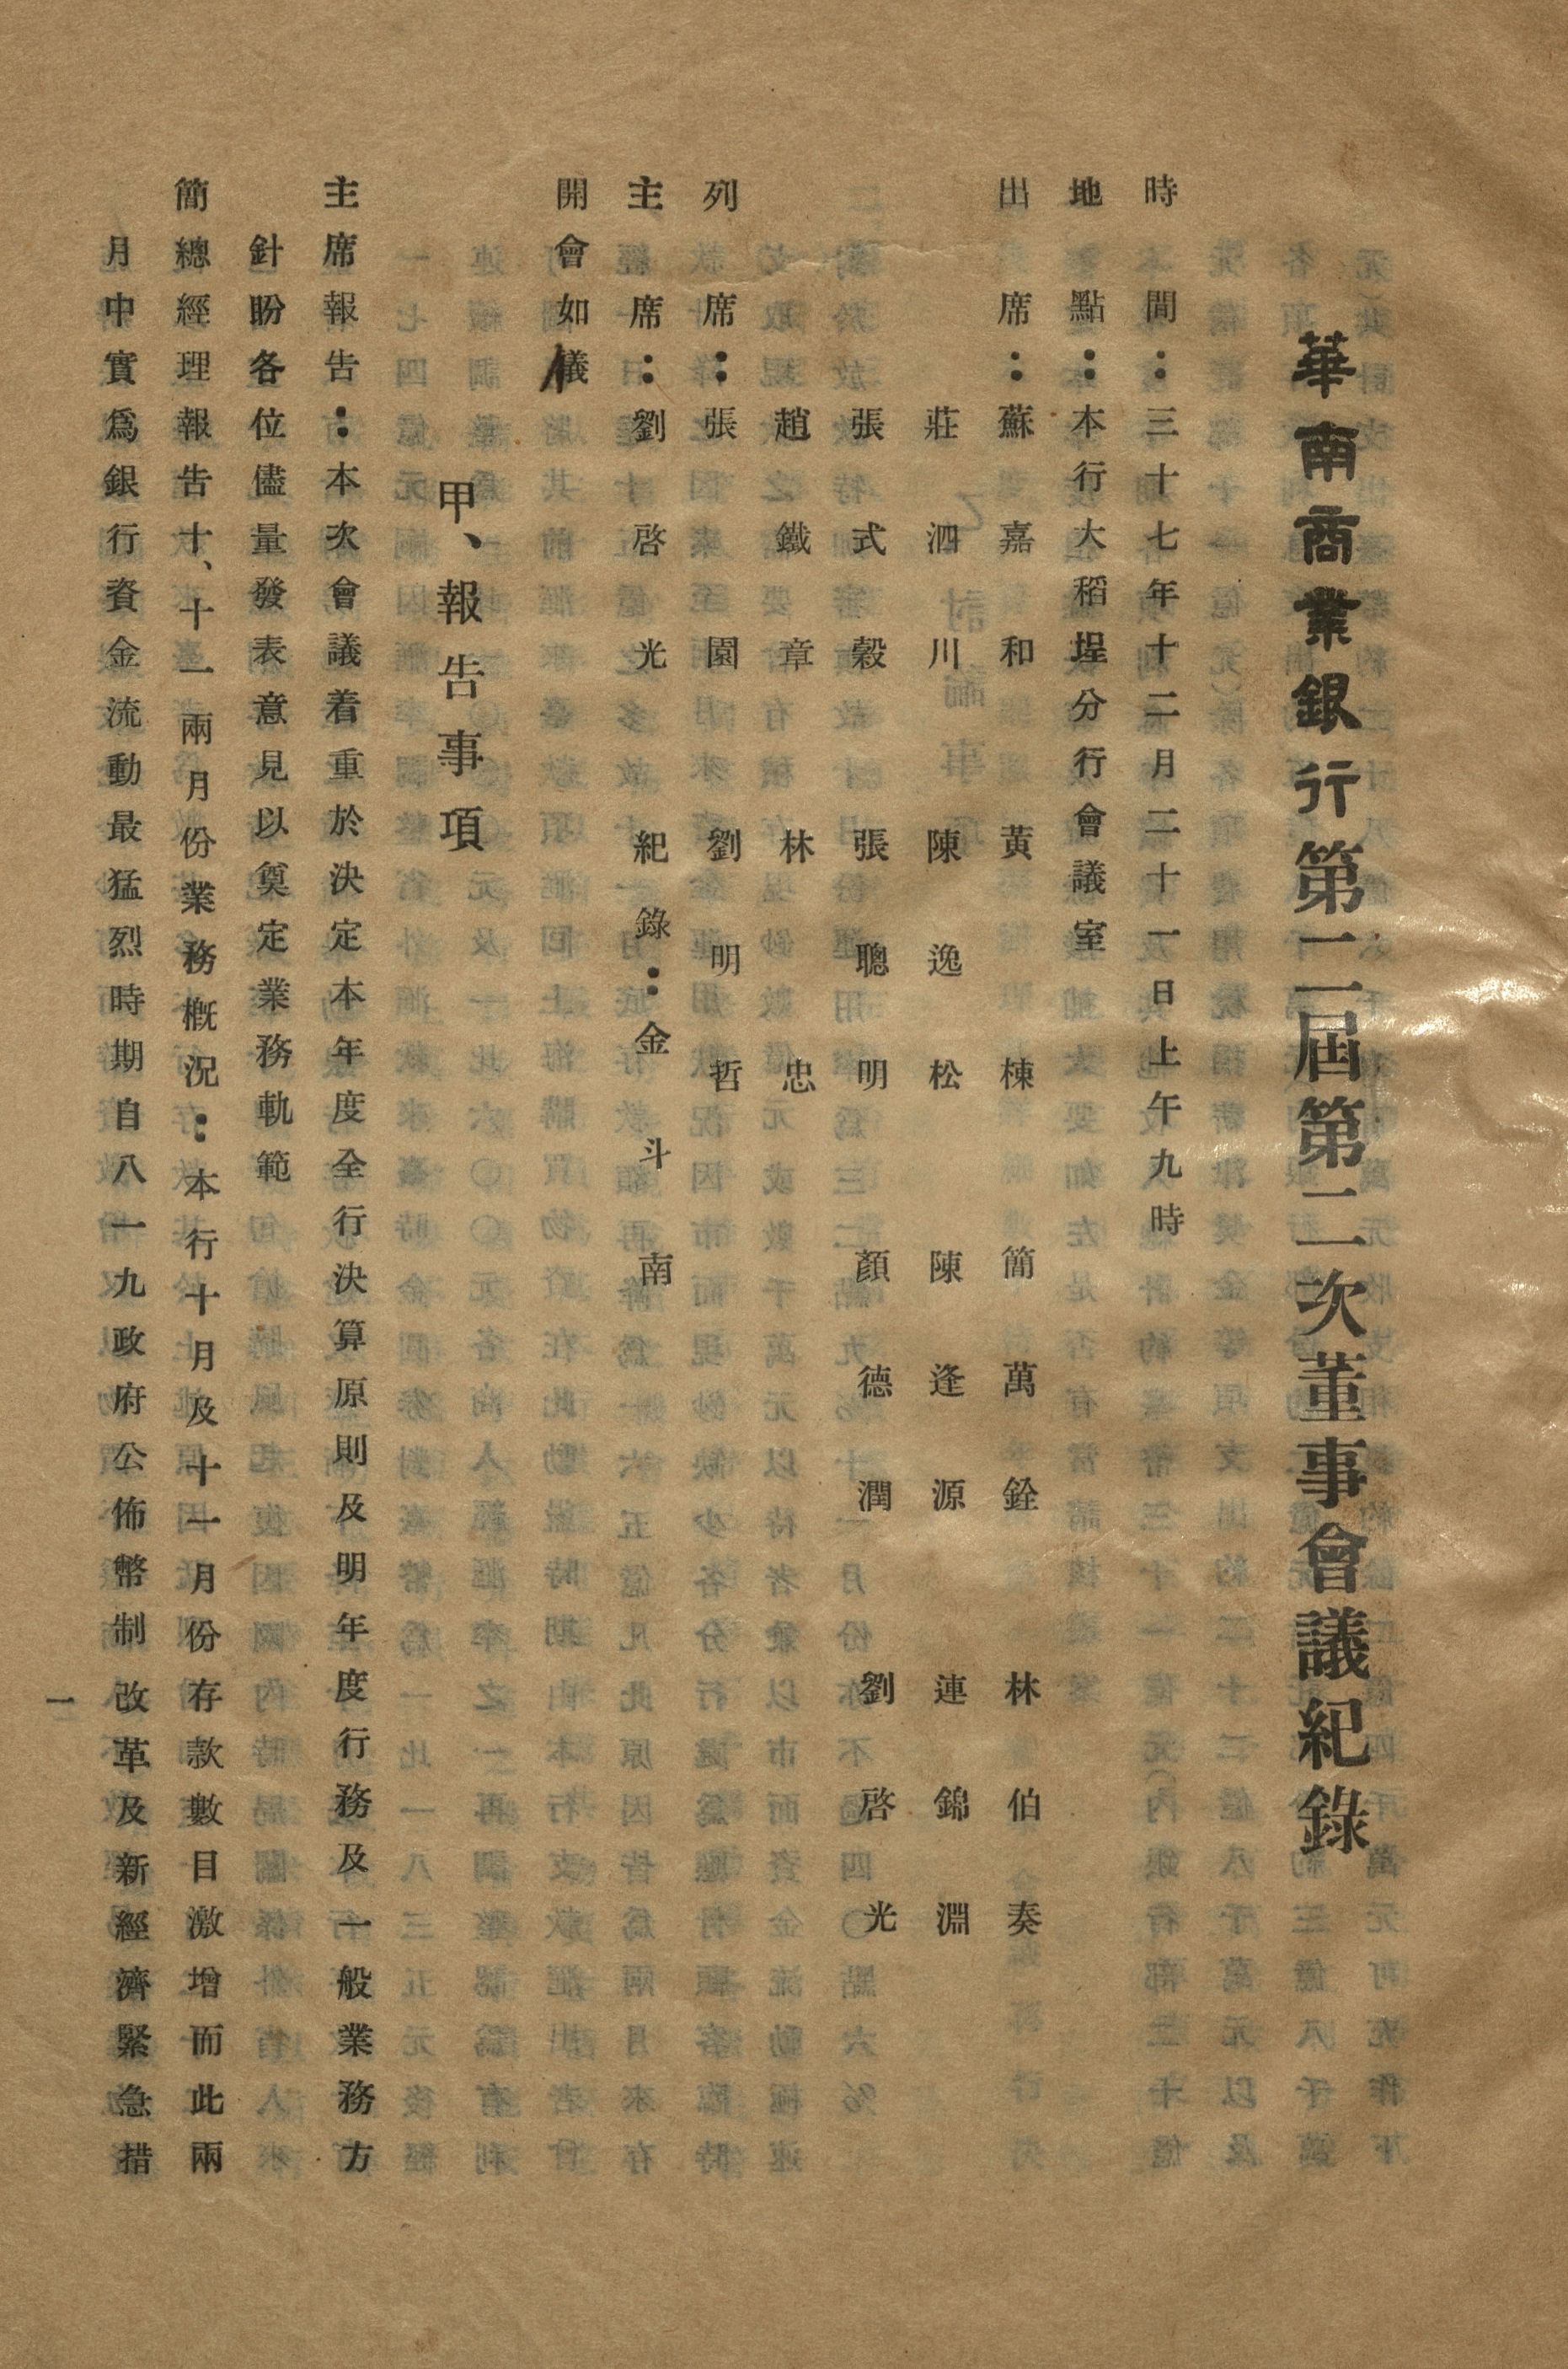 華南商業銀行第二屆第二次董事會議紀錄
時間：三十七年十二月二十一日上午九時
地點：本行大稻埕分行會議室
出席：蘇嘉和 黃棟 簡萬銓 林伯奏
莊泗川 陳逸松 陳逢源 連錦淵
張式穀 張聰明 顏德潤 劉啓光
趙鐵章 林忠
列席：張園 劉明哲
主席：劉啓光 紀錄：金斗南
開會如儀
甲、報告事項
主席報告：本次會議着重於決定本年度全行決算原則及明年度行務及一般業務方
針盼各位儘量發表意見以奠定業務軌範
簡總經理報告十、十一兩月份業務概況：本行十月及十一月份存款數目激增而此兩
月中實爲銀行資金流動最猛烈時期自八一九政府公佈幣制改革及新經濟緊急措
一